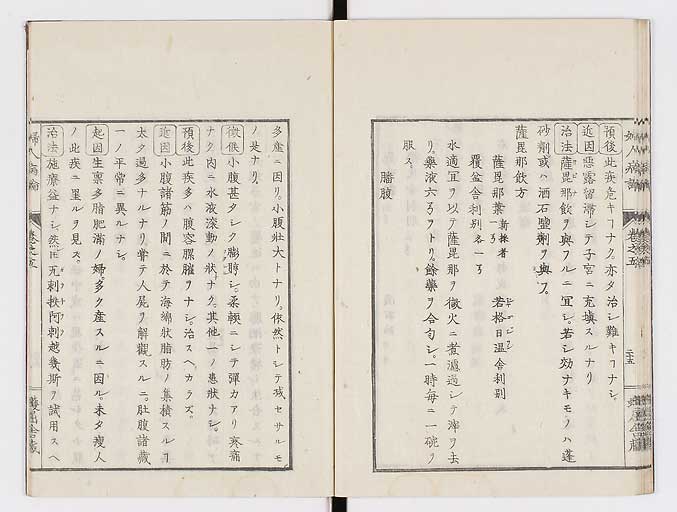 預後此疾危キヿナク。亦タ治シ難キヿナシ
近因惡露留滞シテ子宮ニ充填スルナリ
治法薩毘那飲ヲ與フルニ冝シ。若シ効ナキモノハ蓬
砂劑或ハ酒石鹽劑ヲ與フ。
薩毘那飲方
薩毘那葉 新採者 一 若格日温舎利別
覆盆舎利別各一
水適冝ヲ以テ薩毘那ヲ微火ニ煮濾過シテ滓ヲ去
リ。藥液六ヲトリ。餘藥ヲ合匀シ。一時毎ニ一碗ヲ
服ス。
腯腹
婦人病論 卷之五
多産ニ因リ。小腹壮大トナリ。依然トシテ减セサルモ
ノ是ナリ。
徴候小腹甚タシク膨脝シ。柔軟ニシテ彈力アリ疼痛
ナク。内ニ水液滾動ノ狀ナク。其他一ノ患狀ナシ。
預後此疾多ハ腹容膨脝ヲナシ。治スヘカラズ。
近因小腹諸筋ノ間ニ於テ海綿狀脂肪ノ集積スルヿ
太タ過多ナルナリ。甞テ人屍ヲ解觀スルニ。肚腹諸藏
一ノ平常ニ異ルナシ。
起因生稟多脂肥滿ノ婦。多ク産スルニ因ル。未タ瘦人
ノ此疾ニ罹ルヲ見ス。
治法施療益ナシ然𪜈。王刺軼阿刺越幾斯ヲ試用スヘ
婦人病論 卷之五